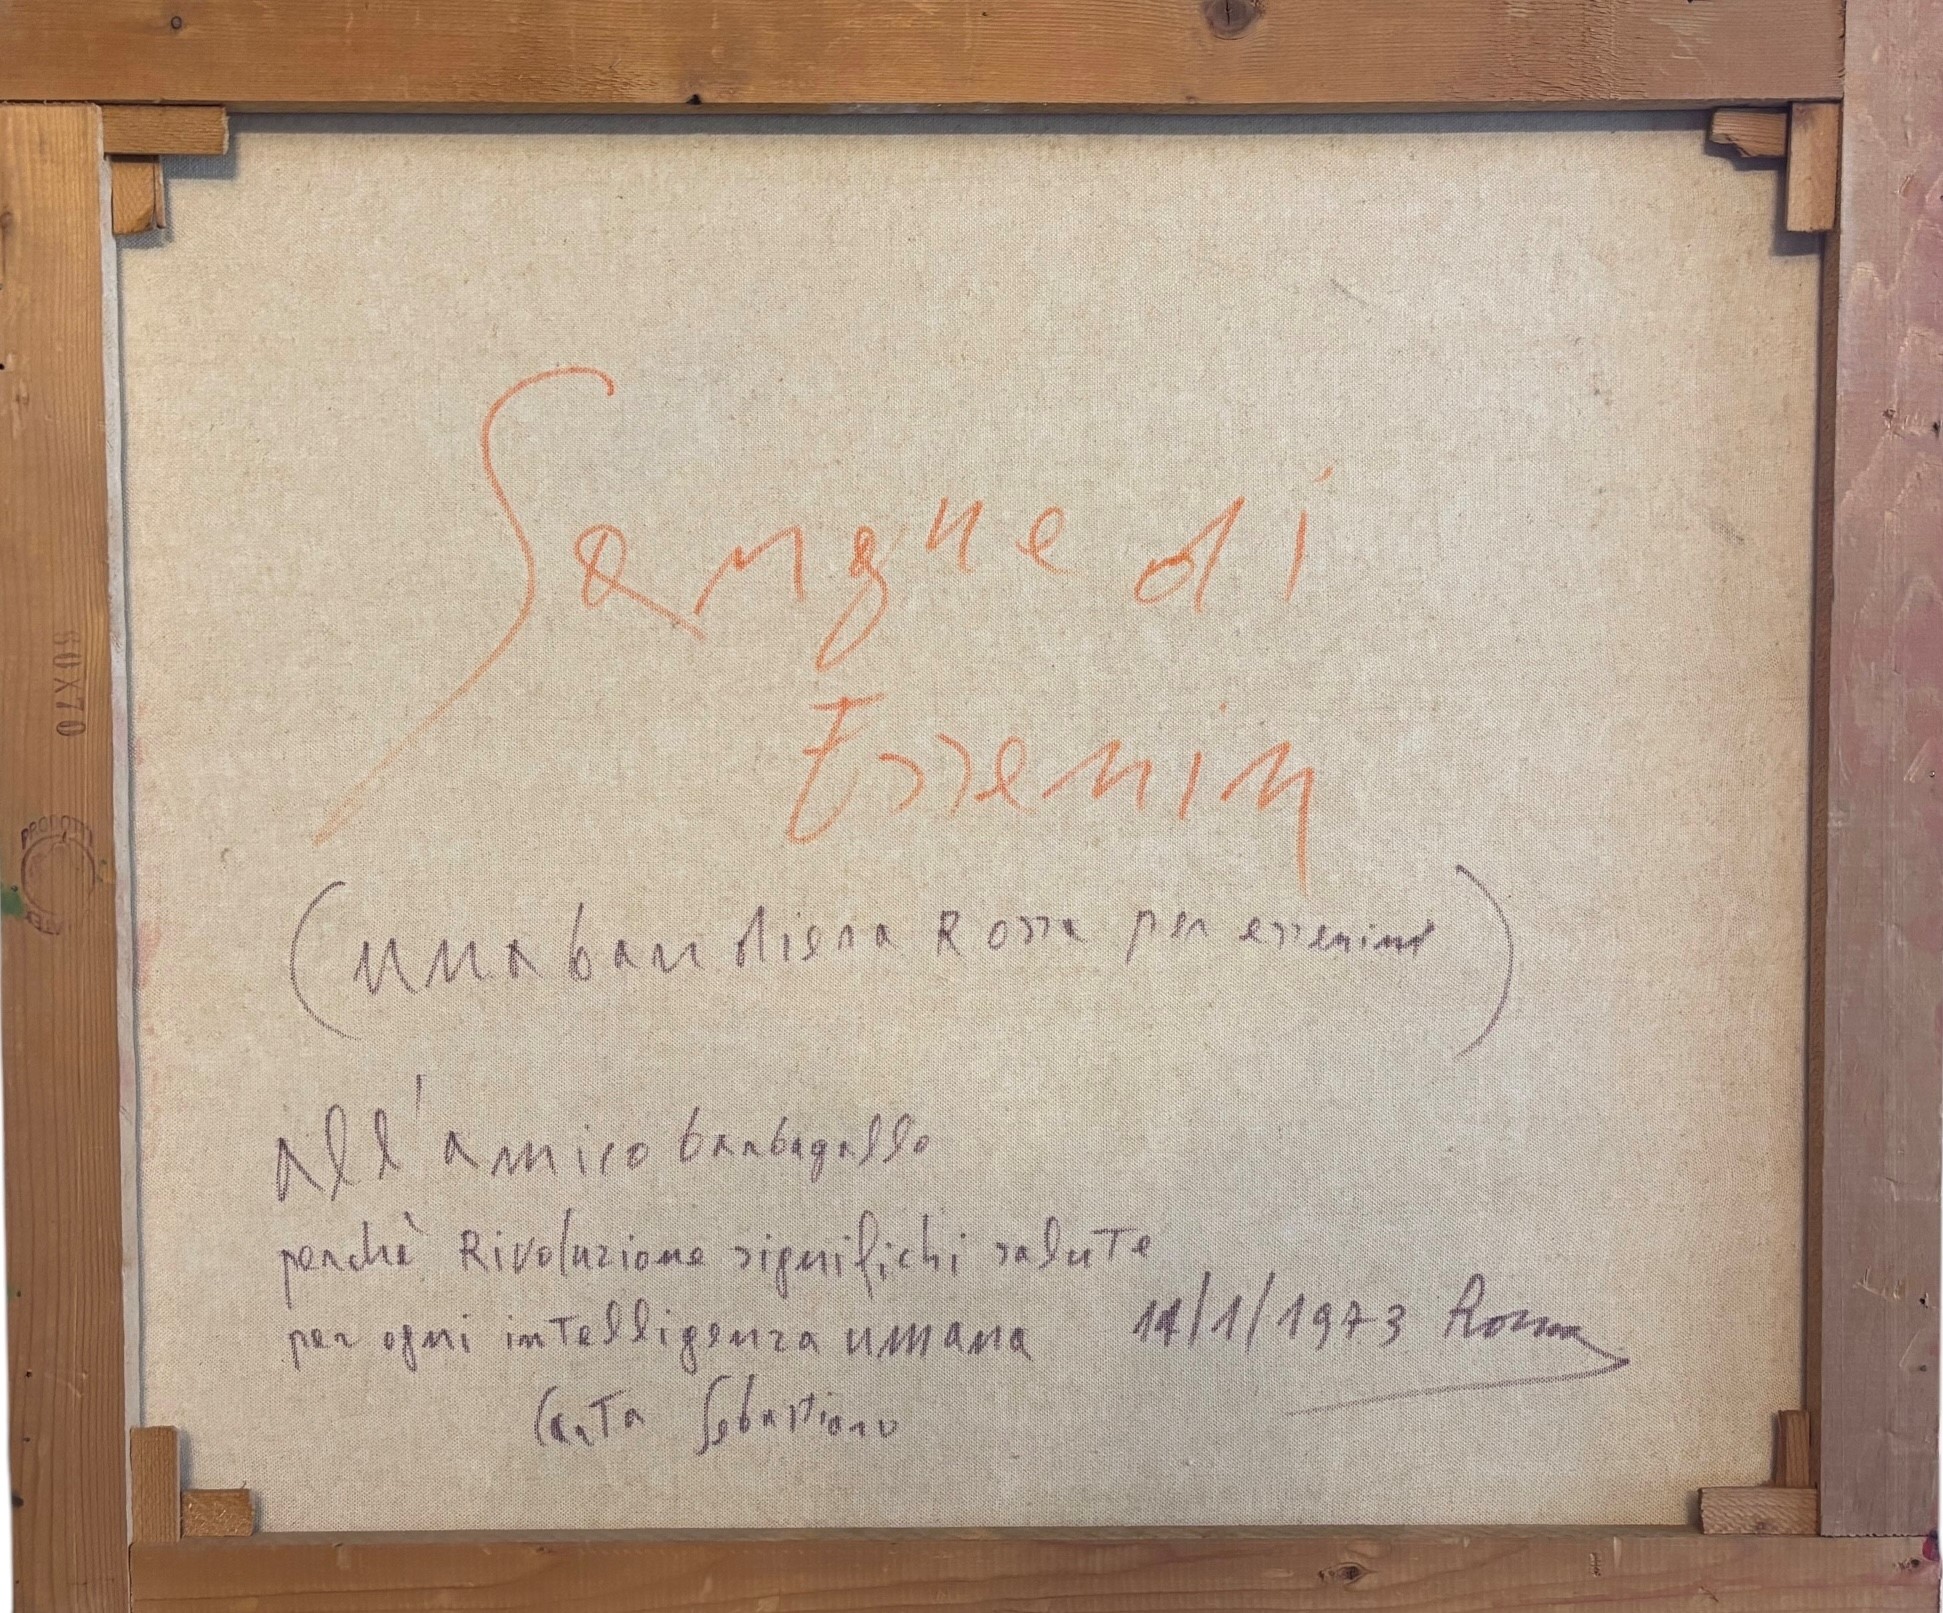 Sangue di
Essenin
(una bandiera Rossa per essenin)
All'amico barbagallo
perchè Rivoluzione significhi salute
per ogni intelligenza umana 14/1/1973 Roma
Carta Sebastiano
80X70
PRODOTTI